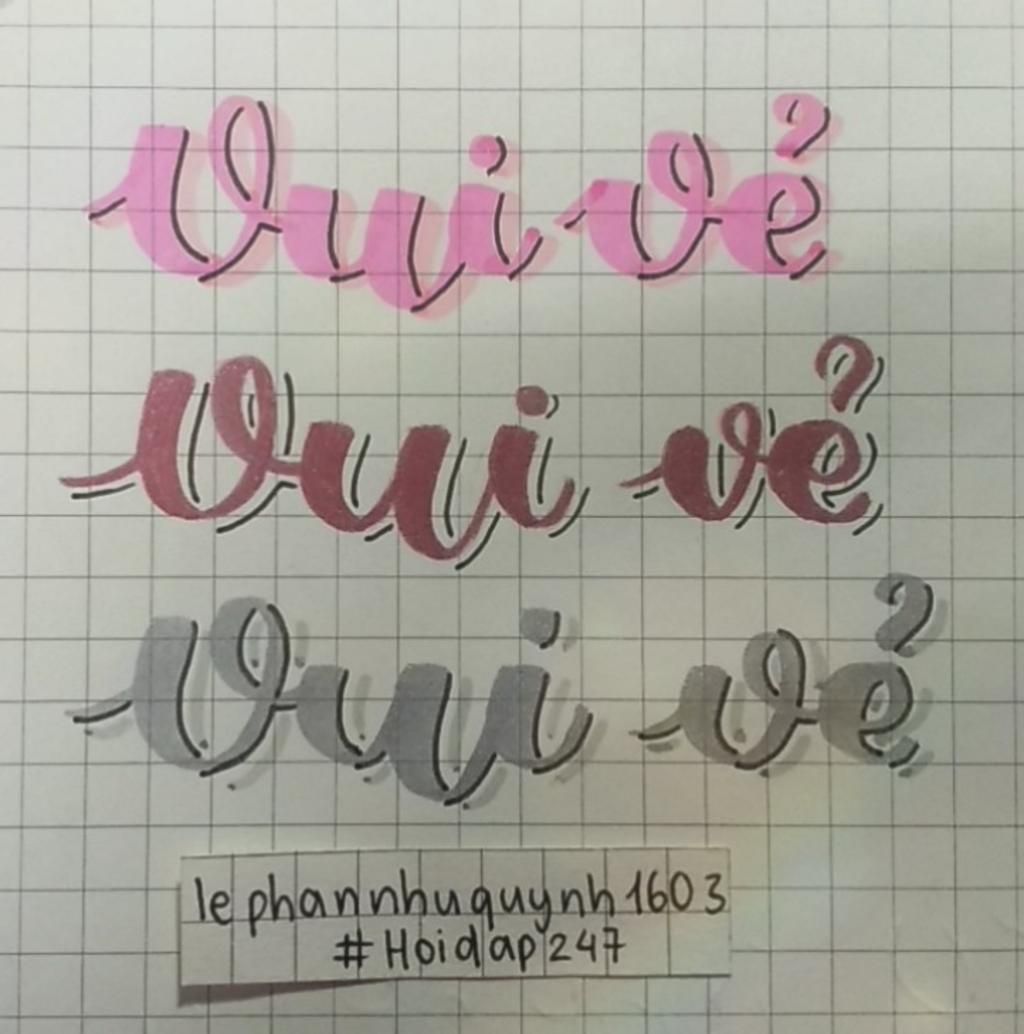 Vui vẻ
Vui vẻ
Vui vẻ
lephannhuquynh1603
#Hoidap247